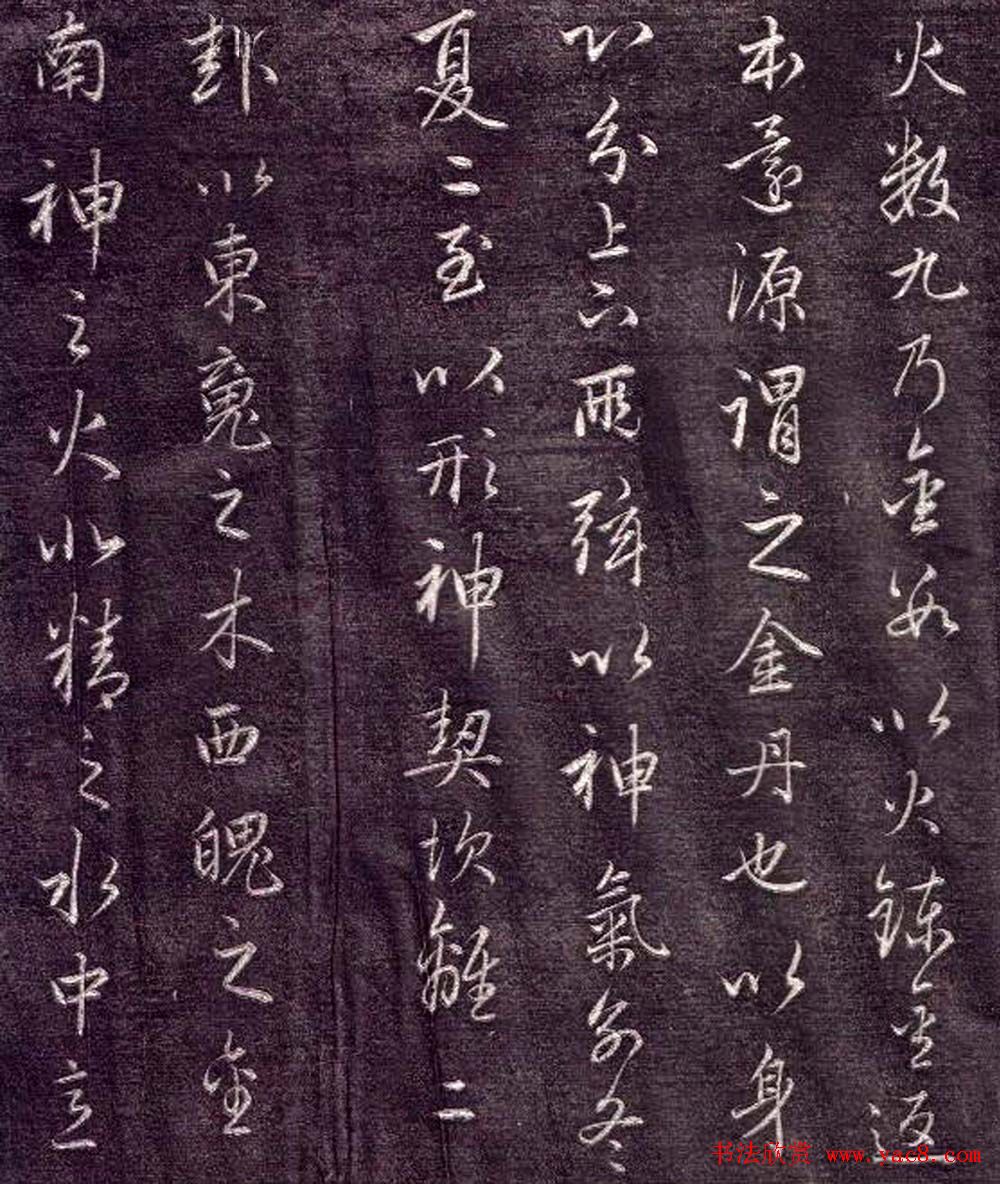 火数九乃金數以火鍊金返
本還源謂之金丹也以身
心分上下兩弦以神氣別冬
夏二至以形神契坎離二
卦以東魂之木西魄之金
南神之火北精之水中意
书法欣赏 www.yac8.com